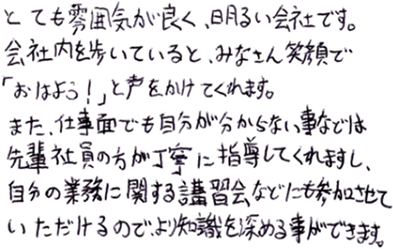 とても雰囲気が良く、明るい会社です。
会社内を歩いていると、みなさん笑顔で
「おはよう!」と声をかけてくれます。
また、仕事面でも自分が分からない事などは
先輩社員の方が丁寧に指導してくれますし、
自分の業務に関する講習会などにも参加させて
いただけるので、より知識を深める事ができます。